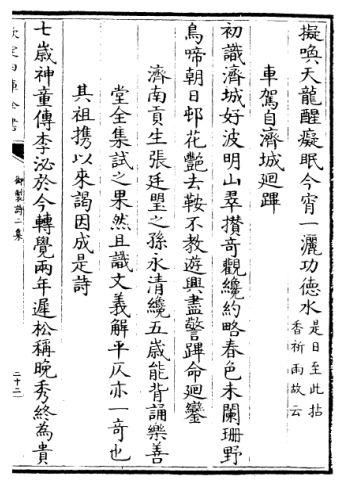 擬喚天龍醒癡眠今宵一灑功德水是日至此拈
香祈雨故云
車駕自濟城迴蹕
初識濟城好波明山翠攢奇觀纔約略春色未闌珊野
鳥啼朝日邨花艷去鞍不教遊興盡警蹕命迴鑾
濟南貢生張廷璺之孫永清纔五歲能背誦樂善
堂全集試之果然且識文義解平仄亦一奇也
其祖攜以來謁因成是詩
七歲神童傳李泌於今轉覺兩年遲松稱晚秀終為貴
御製詩二集
二十三